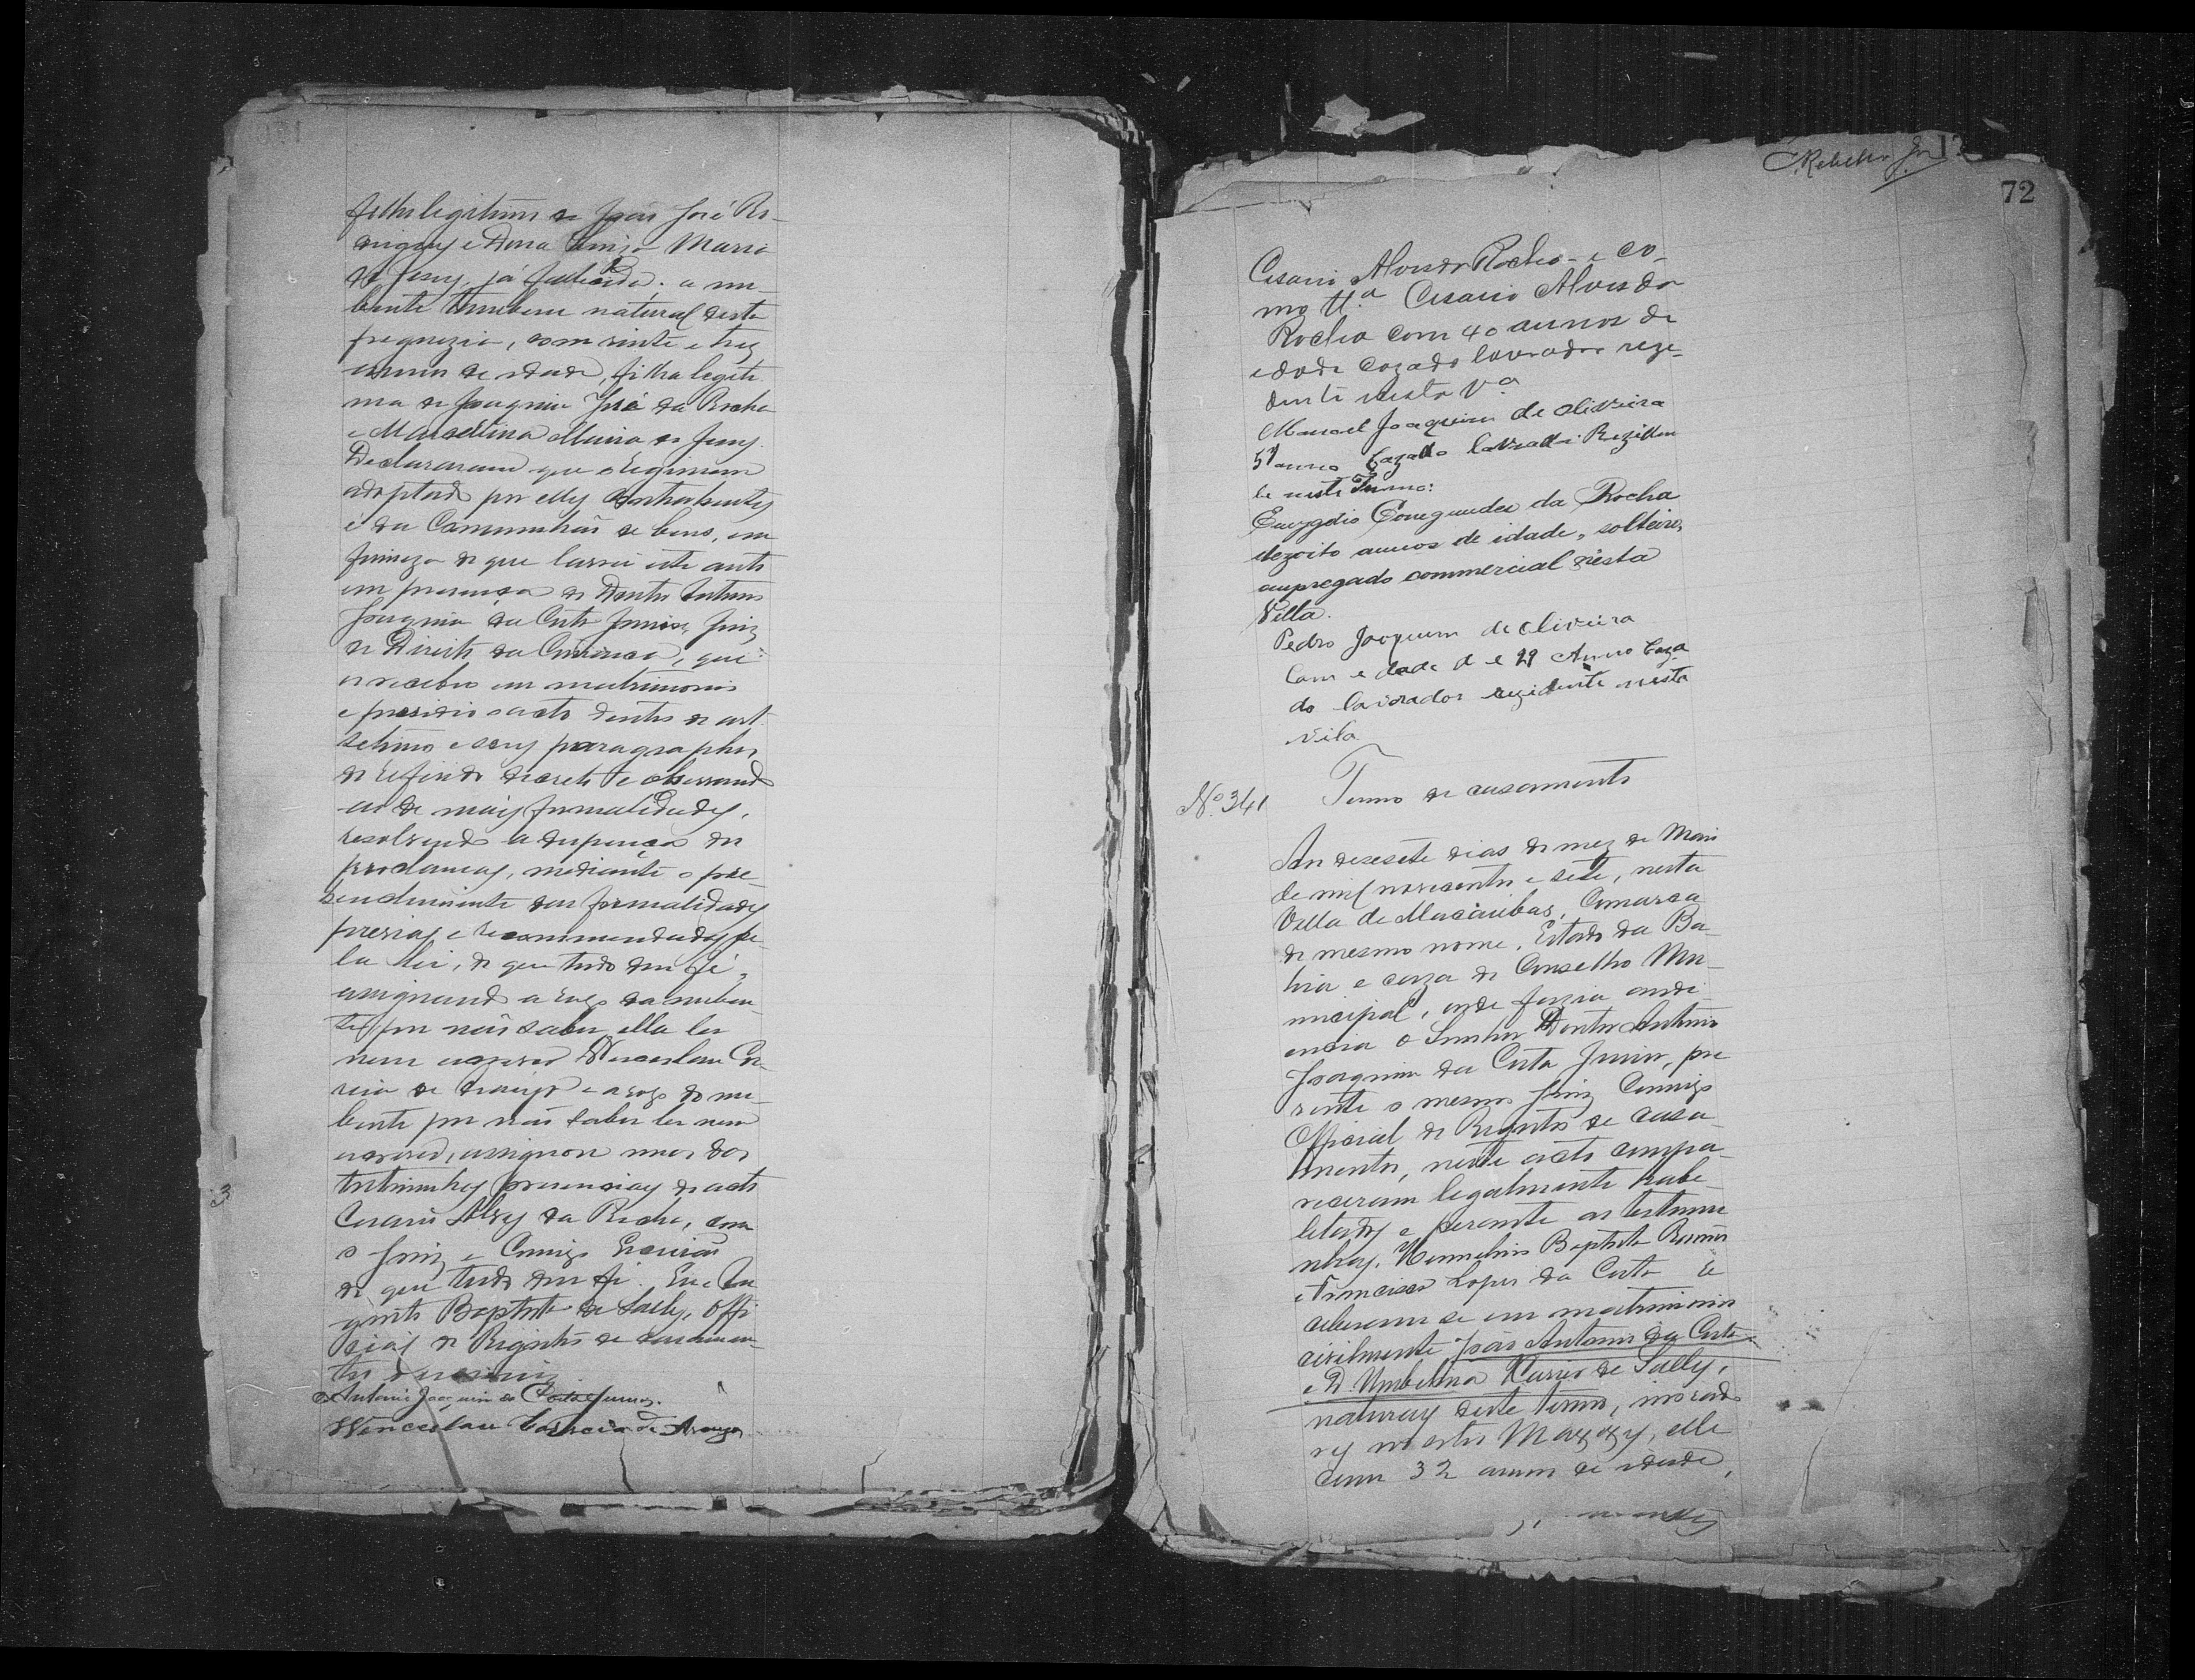 filho legitimo de João José Ro-
drigues e Dona Luiza Maria
de Jesus, já fallecida; a nu-
bente tambem natural desta
freguezia, com vinte e trez
annos de idade, filha legiti-
ma de Joaquim José da Rocha
e Marcellina Maria de Jesus.
Declararam que o regimem
adoptado por elles contrahentes
é da Communhão de bens, em
firmeza do que lavrei este auto
em presença do Doutor Antonio
Joaquim da Costa Junior, Juiz
de Direito da Comarca, que
os recebeo em matrimonio
e presidio o acto dentro do art.
setimo e seus paragraphos,
do referido decreto e observando
as de mais formalidades,
resolvendo a dispensa dos
proclamas, mediante o pre-
enchimento das formalidades
previas e recommendadas pe-
la Lei, do que tudo dou fé,
assignando a rogo da nuben-
te por não saber ella ler
nem escrever Wencesláu Cor-
reia de Araujo e a rogo do nu-
bente por não saber ler nem
escrever, assignou uma das
testimunhas presenciaes do acto
Cesario Alves da Rocha, com
o Juiz e Comigo Escrivão
do que tudo dou fé. Eu
Baptista de Salles, Offi-
cial do Registro de casamen-
tos
Antonio Joaquim da Costa Junior.
Wenceslau Correia de Araujo
3
72
Cesario Alves da Rocha - e co-
mo tt.ª Cesario Alves da
Rocha com 40 annos de
edade cazado lavrador reze-
dente nesta Vª
Manoel Joaquim de Oliveira
annos Cazado lavrador Rezidem
te neste Termo:
Emygdio Conegundes da Rocha
dezoito annos de idade, solteiro,
empregado commercial nesta
Villa.
Pedro Joaquim de Oliveira
Com e dade d e 29 Annos Caza
do lavrador rezidente nesta
vila
Nº 341
Termo de casamento
Aos desesete dias do mez de Maio
de mil novecentos e sete, nesta
Villa de Macaúbas, Comarca
do mesmo nome, Estado da Ba-
hia e caza do Conselho Mu-
nicipal, onde fazia audi-
encia o Senhor Doutor Antonio
Joaquim da Costa Junior, pre
sente o mesmo Juiz Comigo
Official do Registro de casa-
mentos, neste acto compa-
receram legalmente habe-
letados e perante as testimu
nhas, Baptista
e Francisco Lopes da Costa Re
ceberam se em matrimonio
civilmente João Antonio da Costa
e D. Umbelina Maria de Salles,
naturaes deste termo, morado
res n'estes, elle
com 32 annos de idade,